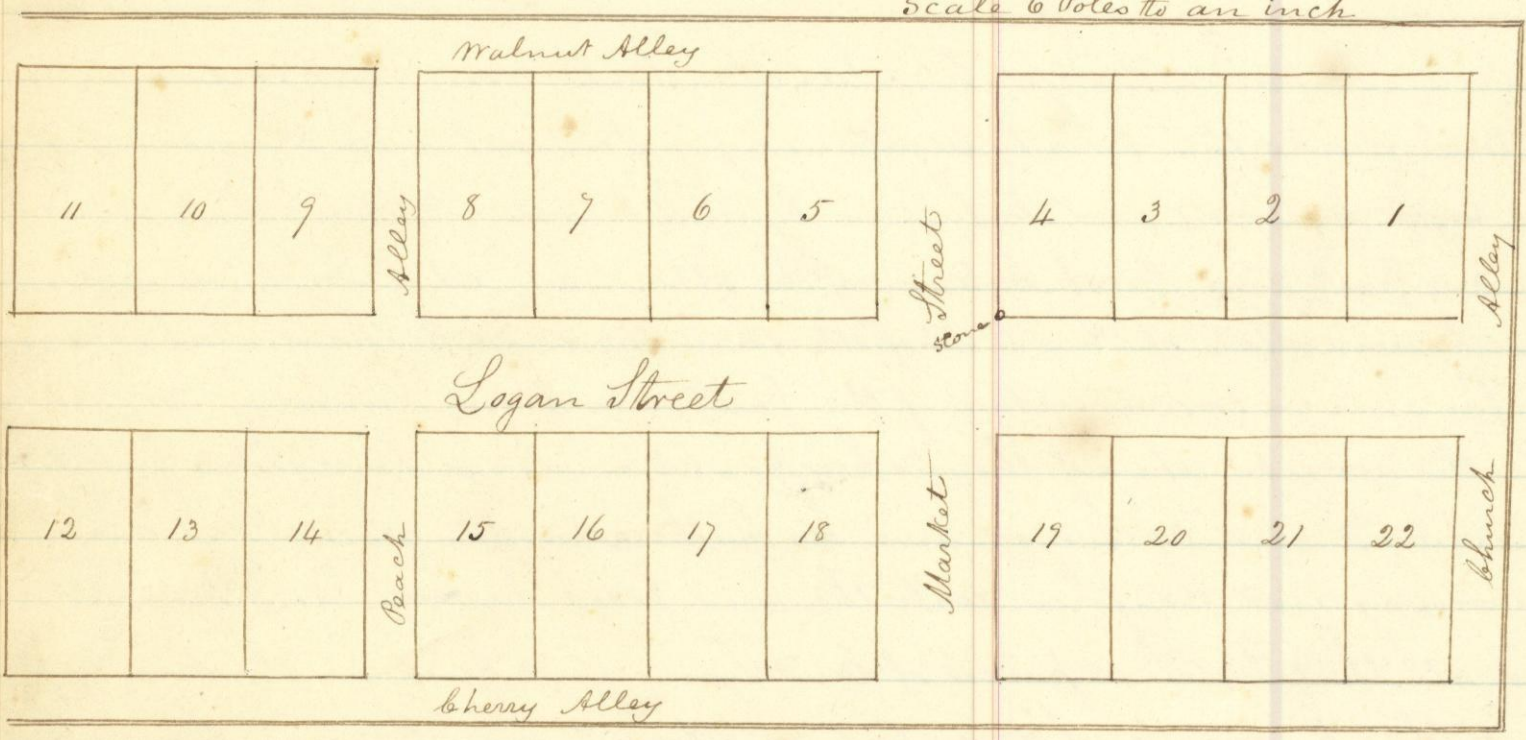 Scale 6 Poles to an inch
Walnut Alley
11 10 9 Alley 8 7 6 5 Street 4 3 2 1 Alley
Stone
Logan Street
12 13 14 Peach 15 16 17 18 Market 19 20 21 22 Church
Cherry Alley